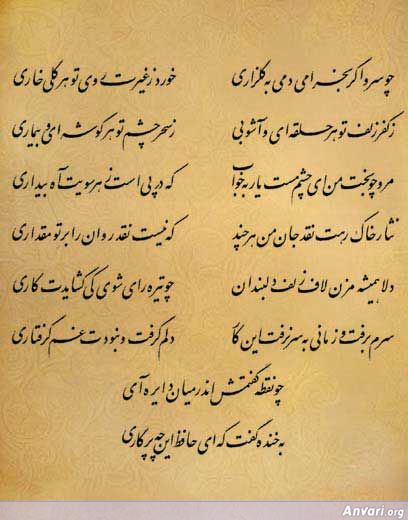 چو سرو اگر بخرامی دمی به گلزاری خورد ز غیرت روی تو هر گلی خاری
ز کفر زلف تو هر حلقه‌ای و آشوبی ز سحر چشم تو هر گوشه‌ای و بیماری
مرو چو بخت من ای چشم مست یار به خواب که در پی است ز هر سویت آه بیداری
نثار خاک رهت نقد جان من هر چند که نیست نقد روان را بر تو مقداری
دلا همیشه مزن لاف زلف دلبندان چو تیره رای شوی کی گشایدت کاری
سرم برفت و زمانی به سر نرفت این کار دلم گرفت و نبودت غم گرفتاری
چو نقطه گفتمش اندر میان دایره آی
به خنده گفت که ای حافظ این چه پرگاری
Anvari.org